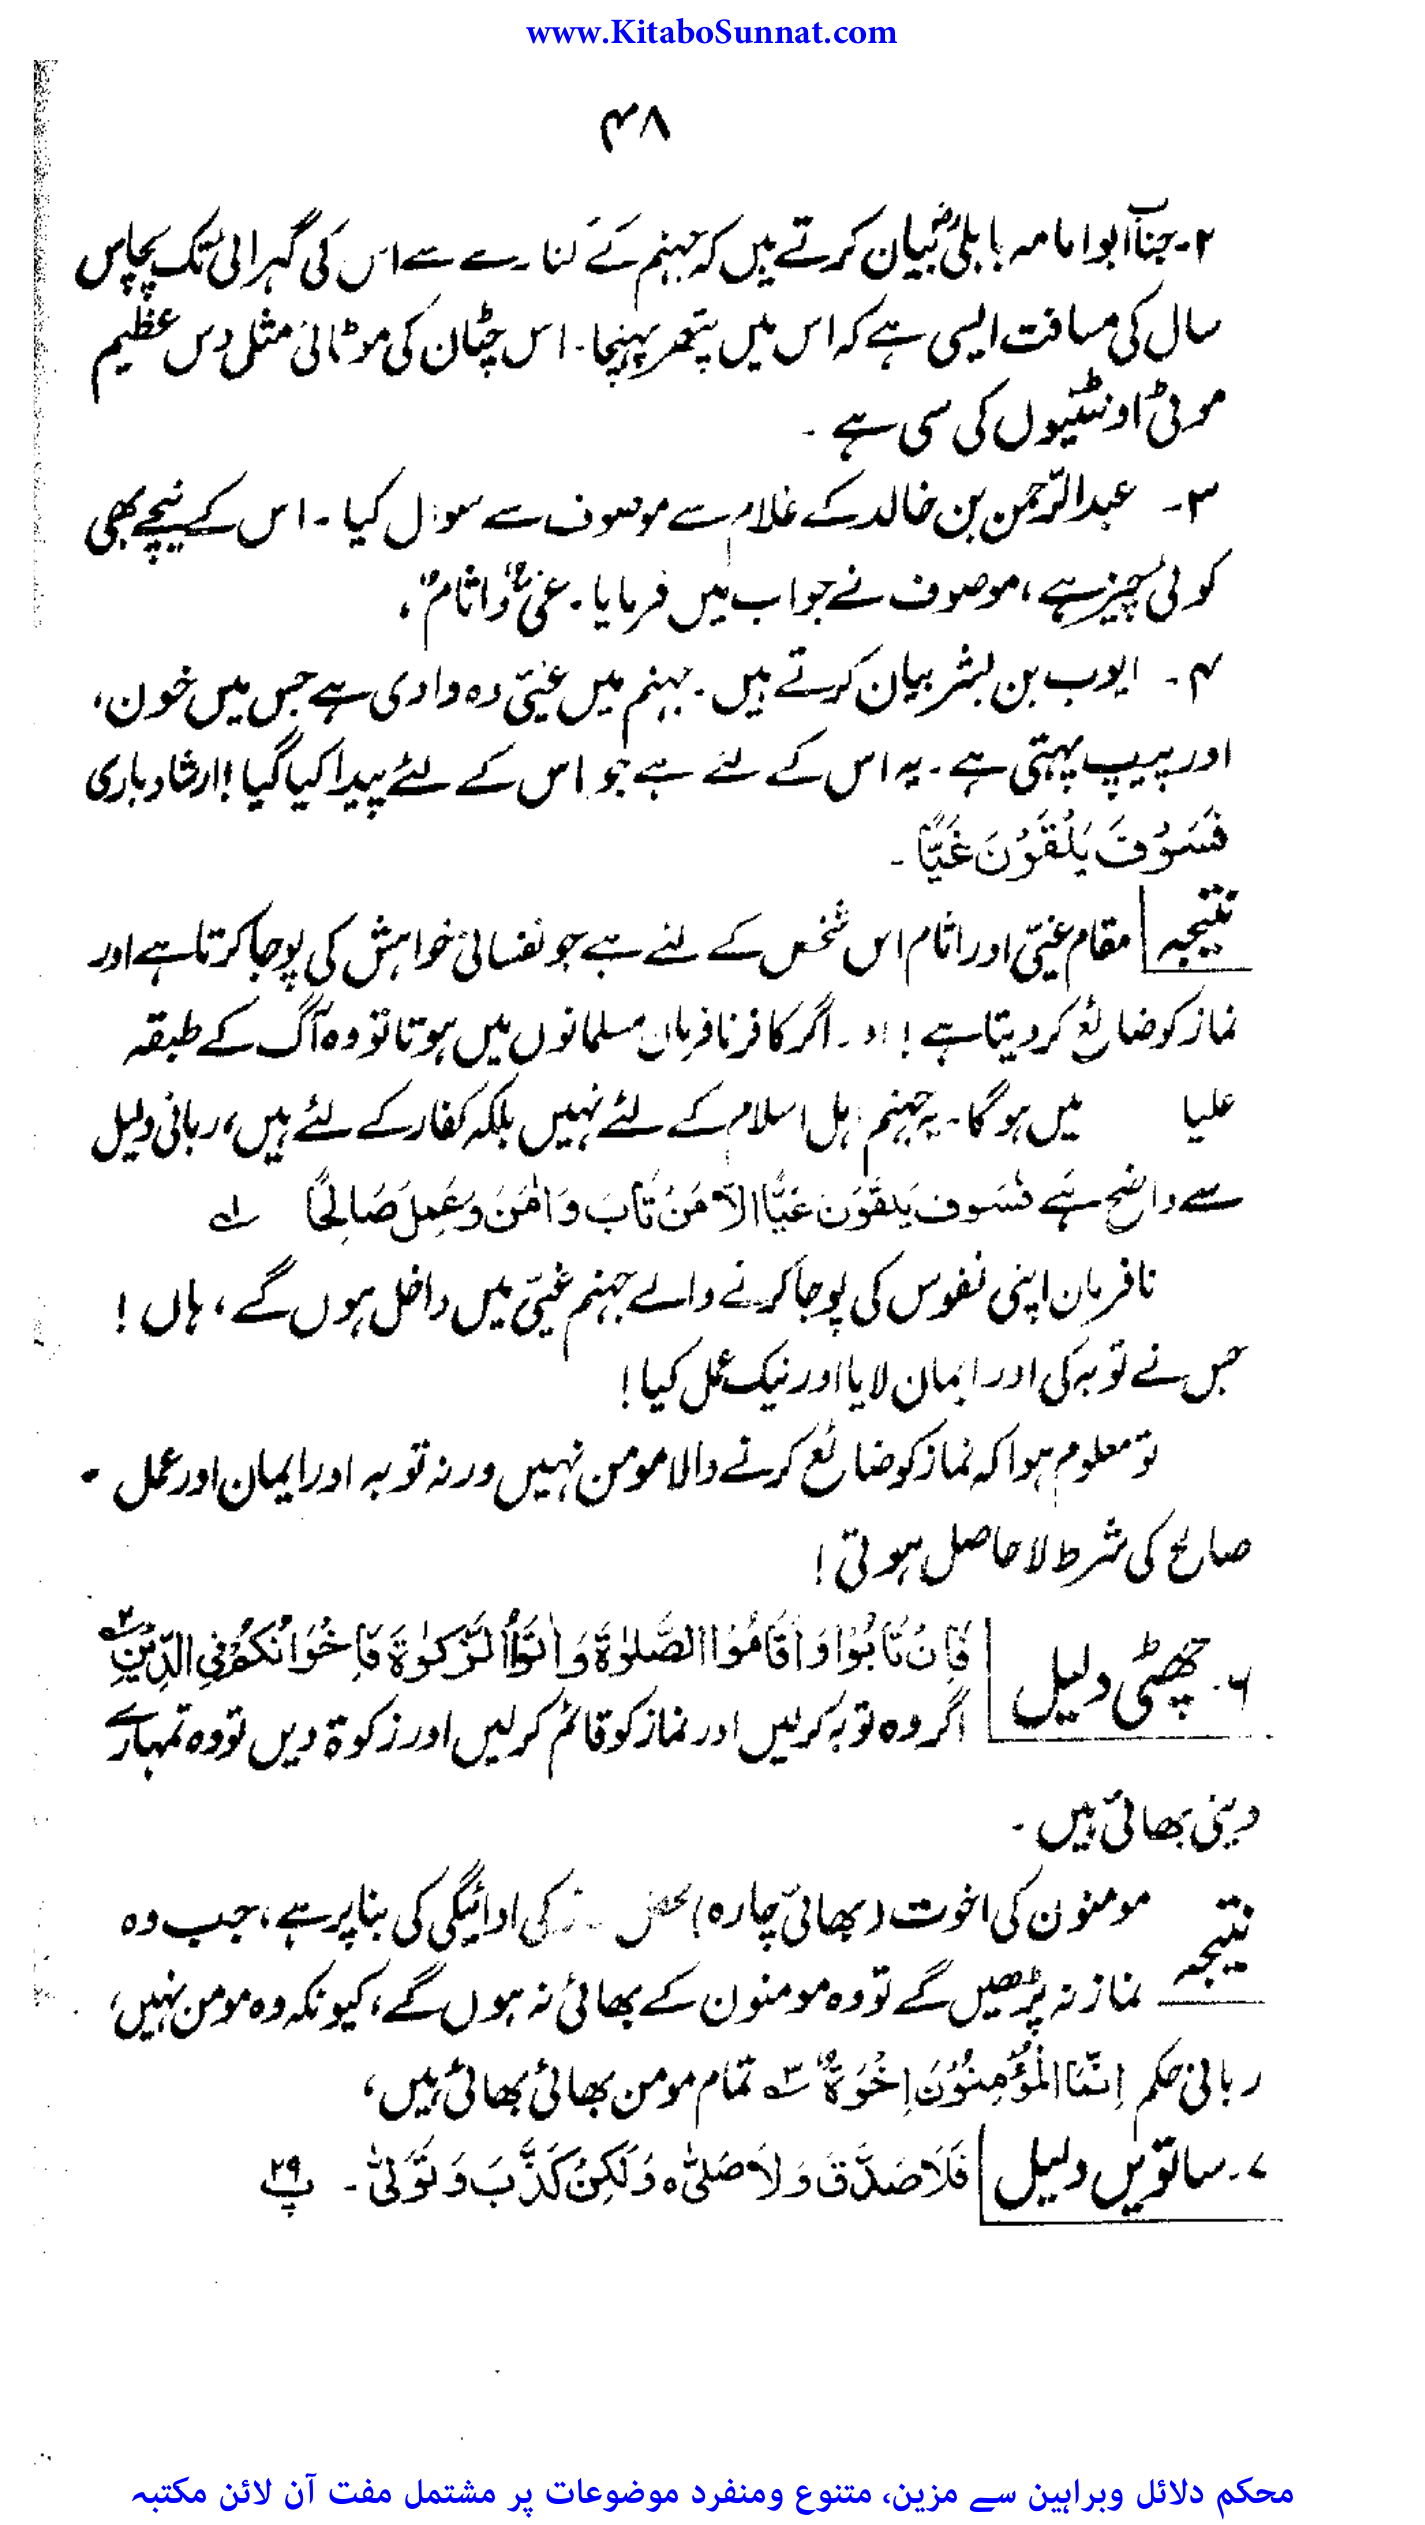 www.KitaboSunnat.com
۴۸
۲۔ جناب ابوامامہ باہلیؓ بیان کرتے ہیں کہ جہنم کے کنارے سے اس کی گہرائی تک پچاس
سال کی مسافت ایسی ہے کہ اس میں پتھر پہنچا۔ اس چٹان کی موٹائی مثل دس عظیم
موٹی اونٹنیوں کی سی ہے ۔
۳۔ عبدالرّحمن بن خالد کے غلام سے موصوف سے سوال کیا ۔ اس کے نیچے بھی
کوئی چیز ہے ، موصوف نے جواب میں فرمایا ۔ غَیٌّ وَّاثَامٌ ،
۴۔ ایوب بن بشر بیان کرتے ہیں ۔ جہنم میں غیّ وہ وادی ہے جس میں خون ،
اور پیپ بہتی ہے ۔ یہ اس کے لئے ہے جو اس کے لئے پیدا کیا گیا ! ارشاد باری
فَسَوْفَ يَلْقَوْنَ غَيًّا ۔
نتیجہ مقام غیّ اور اثام اس شخص کے لئے ہے جو نفسانی خواہش کی پوجا کرتا ہے اور
نماز کو ضائع کر دیتا ہے ! اگر کافر نافرمان مسلمانوں میں ہوتا تو وہ آگ کے طبقہ
علیا میں ہو گا ۔ یہ جہنم اہل اسلام کے لئے نہیں بلکہ کفار کے لئے ہیں ، ربانی دلیل
سے واضح ہے فَسَوفَ يَلْقَوْنَ غَيًّا اِلَّا مَنْ تَابَ وَاٰمَنَ وَعَمِلَ صَالِحًا ۱ے
نافرمان اپنی نفوس کی پوجا کرنے والے جہنم غیّ میں داخل ہوں گے ، ہاں !
جس نے توبہ کی اور ایمان لایا اور نیک عمل کیا !
تو معلوم ہوا کہ نماز کو ضائع کرنے والا مومن نہیں ورنہ توبہ اور ایمان اور عمل -
صالح کی شرط لا حاصل ہوتی !
۶۔ چھٹی دلیل فَاِنْ تَابُوْا وَاَقَامُوا الصَّلٰوةَ وَاٰتَوُا الزَّكٰوةَ فَاِخْوَانُكُمْ فِى الدِّيْنِ ۲ے
اگر وہ توبہ کرلیں اور نماز کو قائم کرلیں اور زکوۃ دیں تو وہ تمہارے
دینی بھائی ہیں ۔
نتیجہ مومنوں کی اخوت (بھائی چارہ) محض کی ادائیگی کی بنا پر ہے ، جب وہ
نماز نہ پڑھیں گے تو وہ مومنون کے بھائی نہ ہوں گے ، کیونکہ وہ مومن نہیں ،
ربانی حکم اِنَّمَا الْمُؤْمِنُوْنَ اِخْوَةٌ ۳ے تمام مومن بھائی بھائی ہیں ،
۷۔ ساتویں دلیل فَلَا صَدَّقَ وَلَا صَلّٰى ہ وَلٰكِنْ كَذَّبَ وَتَوَلّٰى ۔ پ ۲۹
محکم دلائل وبراہین سے مزین، متنوع ومنفرد موضوعات پر مشتمل مفت آن لائن مکتبہ